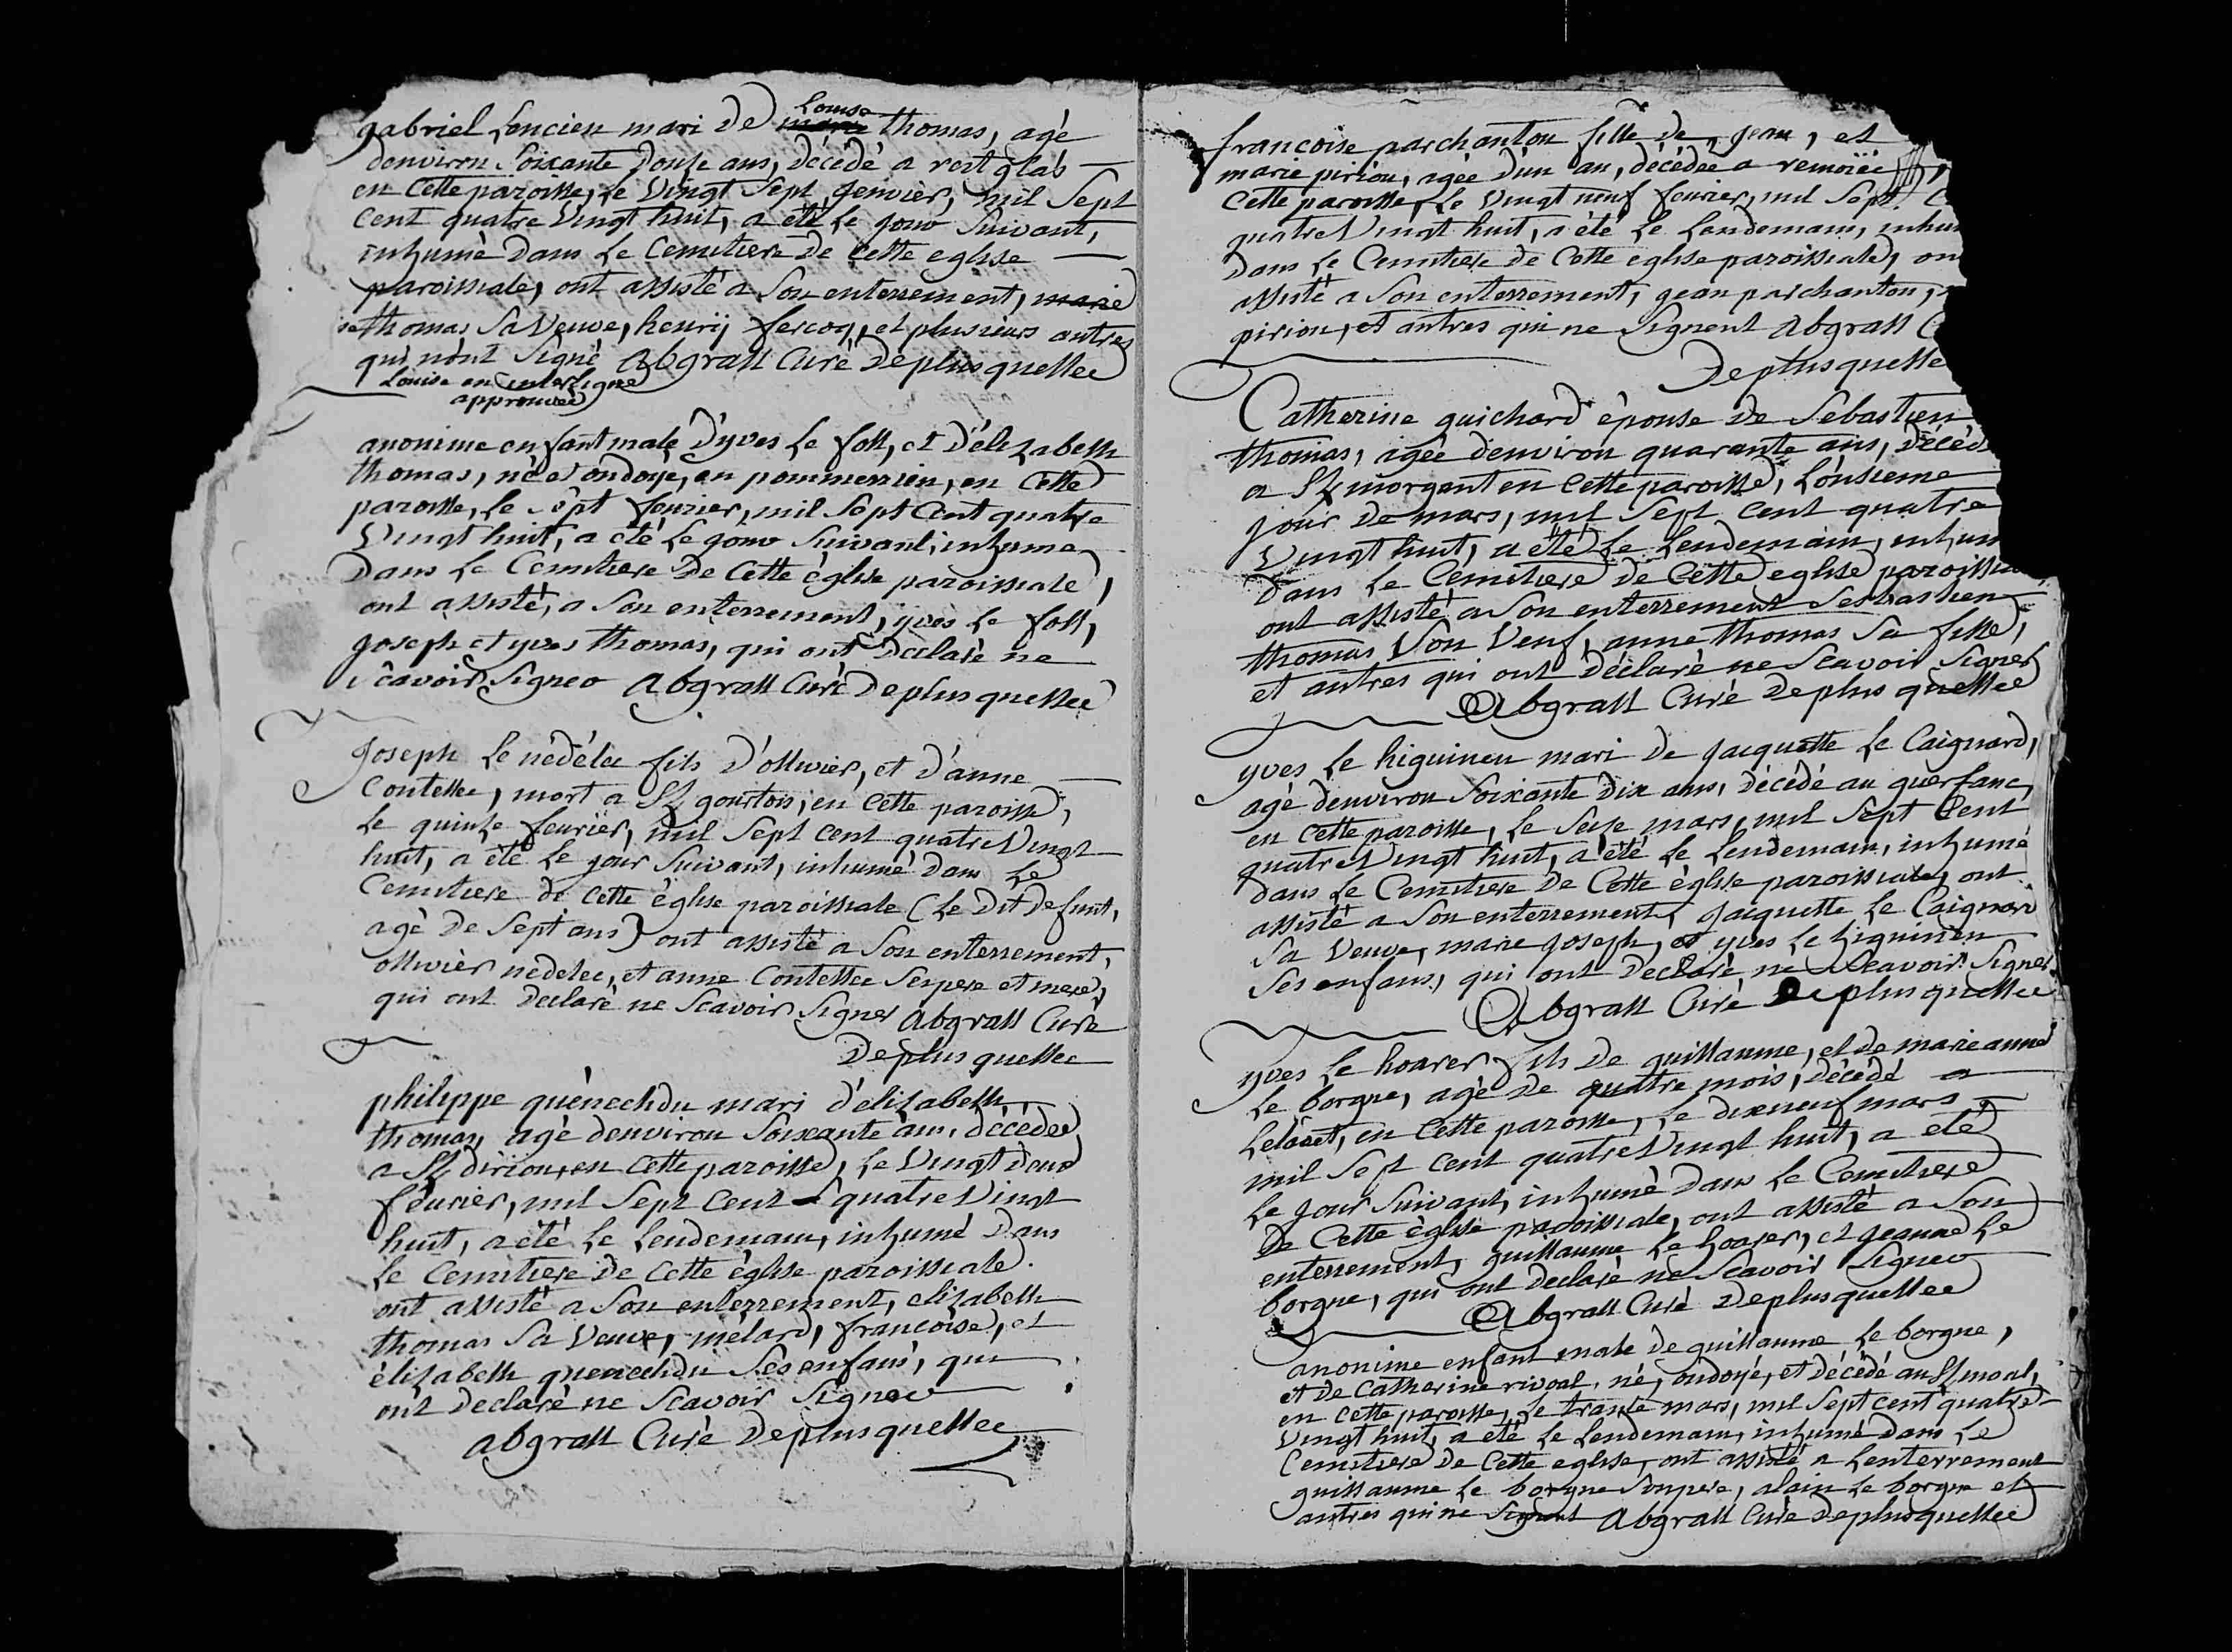 gabriel Loncien mari de Louise marie thomas, agé
denviron Soixante douse ans, décédé a restglas
en Cette paroisse, Le Vingt Sept Jenvier, mil Sept
cent quatre Vingt huit, a été Le jour Suivant,
inhumé dans Le Cemitiere de Cette eglise
paroissiale, ont assisté a Son enterrement, marie
thomas Sa Veuve, henrij fercoq, et plusieurs autres
qui nont Signé Abgrall Curé De plusquellec
Louise en interligne
approuvée
anonime enfant male D'yves Le foll, et D'élizabeth
thomas, né et ondoye, en pommerrien, en Cette
paroisse, Le Sept fevrier, mil Sept Cent quatre
Vingt huit, a été Le jour Suivant, inhume
Dans Le Cemitiere De Cette église paroissiale,
ont assisté, a Son enterrement, yves Le foll,
Joseph et yves thomas, qui ont Declaré ne
Scavoir Signer Abgrall Curé De plusquellec
Joseph Le nédélec fils D'ollivier, et D'anne
Contellec, mort a gourtois, en Cette paroisse,
Le quinze fevrier, mil Sept cent quatre Vingt
huit, a été Le jour Suivant, inhumé Dans Le
Cemitiere de Cette église paroissiale (Le Dit Defunt,
agé De Sept ans) ont assisté a Son enterrement,
ollivier nédélec, et anne Contellec Ses pere et mere,
qui ont Declaré ne Scavoir Signer Abgrall Curé
De plusquellec
philippe quénechdu mari d'élizabeth
thomas, agé denviron Soixante ans, décédée
a dirion, en Cette paroisse, Le Vingt deux
fevrier, mil Sept Cent quatre Vingt
huit, a été Le Lendemain, inhumé Dans
Le Cemitiere De Cette église paroissiale.
ont assisté a Son enterrement, elizabeth
thomas Sa Veuve, mélard, francoise, et
élizabeth quenechdu Ses enfans, qui
ont Declaré ne Scavoir Signer
Abgrall Curé De plusquellec
francoise parchantou fille de, Jean, et
marie piriou, agée D'un an, décédée a
Cette paroisse, Le Vingt neuf fevrier, mil Sept C
quatre Vingt huit, a été Le Lendemain, inhu
Dans Le Cemitiere de Cette eglise paroissiale, on
assisté a Son enterrement, jean parchantou,
piriou, et autres qui ne Signent Abgrall C
De plusquelle
Catherine guichard épouse de Sébastien
thomas, agée denviron quarante ans, Décéd
a morgent en Cette paroisse, L'onsieme
jour De mars, mil Sept cent quatre
Vingt huit, a été Le Lendemain, inhum
Dans Le Cemitiere de Cette eglise paroissia
ont assisté a Son enterrement Sesbastien
thomas Son Veuf, anne thomas Sa fille,
et autres qui ont Déclaré ne Scavoir Signer
Abgrall Curé De plusquellec
yves Le higuinen mari de Jacquette Le Caignard,
agé denviron Soixante Dix ans, Décédé au guerfanc,
en Cette paroisse, Le Seise mars, mil Sept Cent
quatre Vingt huit, a été Le Lendemain, inhumé
dans Le Cemitiere De Cette église paroissiale, ont
assisté a Son enterrement, Jacquette Le Caignard
Sa Veuve, marie Joseph, et yves Le higuinen
Ses enfans, qui ont Declaré ne Scavoir Signer
Abgrall Curé De plusquellec
yves Le hoarer fils De guillaume, et De marie anne
Le borgne, agé De quatre mois, Décédé a
en Cette paroisse, Le dixneuf mars
mil Sept cent quatre Vingt huit, a été
Le Jour Suivant, inhumé Dans Le Cemitiere
De Cette église paroissiale, ont assisté a Son
enterrement, guillaume Le hoarer, et Jeanne Le
borgne, qui ont Declaré ne Scavoir Signer
Abgrall Curé De plusquellec
anonime enfant male de guillaume Le borgne,
et De Catherine rivoal, né, ondoyé, et décédé au moal,
en Cette paroisse, Le trante mars, mil Sept cent quatre
Vingt huit, a été Le Lendemain, inhumé Dans Le
Cemitiere De Cette eglise, ont assisté a Lenterrement
guillaume Le borgne Son pere, alain Le borgne et
autres qui ne Signent Abgrall Curé De plusquellec